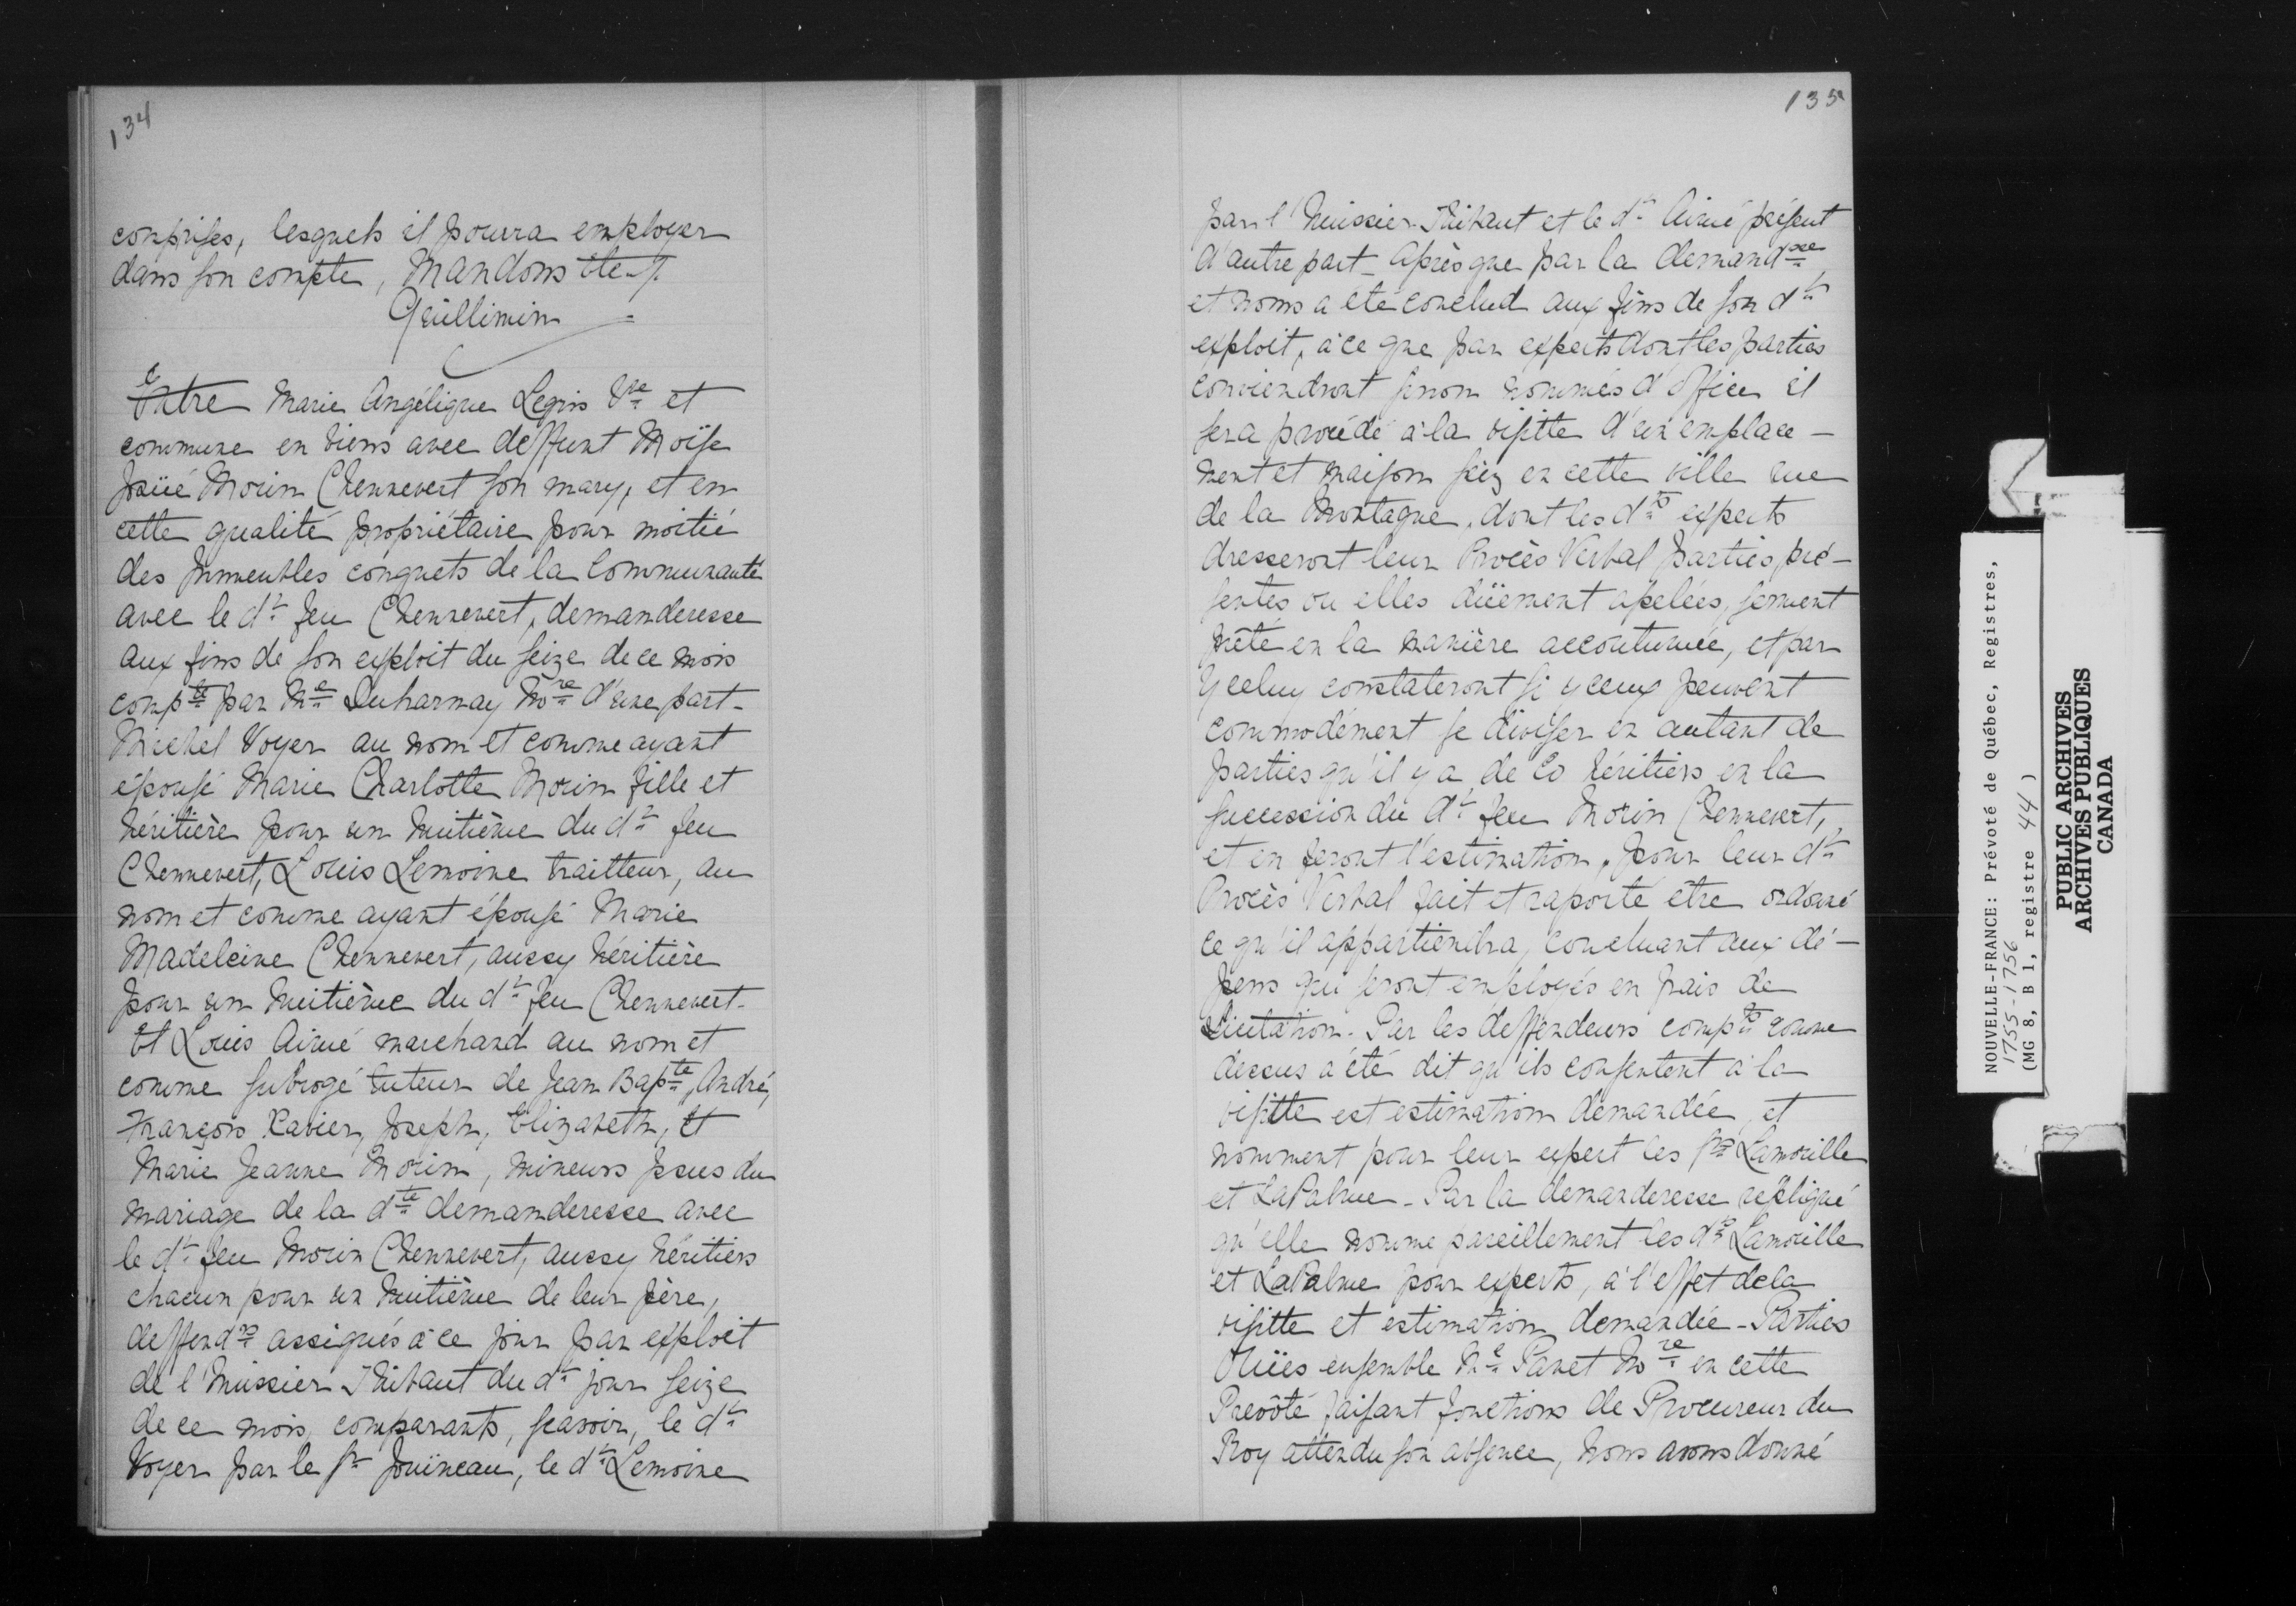 134
comprises, lesquels il pourra employer
dans son compte, Mandons etc.
Guillimin
Entre Marie Angélique Legris Vve et
commune en biens avec deffunt Moïse
Josüé Morin Chennevert son mary, et en
cette qualité propriétaire pour moitié
des Immeubles conquets de la Communauté
avec le dt feu Chennevert, demanderesse
aux fins de son exploit du seize de ce mois
compte par Me Duharnay Nore d'une part-
Michel Voyer au nom et comme ayant
épousé Marie Charlotte Morin fille et
héritière pour un huitième du dt feu
Chennevert, Louis Lemoine traitteur, au
nom et comme ayant épousé Marie
Madeleine Chennevert, aussy héritière
pour un huitième du dt feu Chennevert-
Et Louis Aimé marchand au nom et
comme subrogé tuteur de Jean Bapte, André,
François Xavier, Joseph, Elizabeth, et
Marie Jeanne Morin, mineurs Issus du
mariage de la dte demanderesse avec
le dt feu Morin Chennevert, aussy héritiers
chacun pour un huitième de leur père,
deffendrs assignés à ce jour par exploit
de l'huissier Thibaut du dt jour seize
de ce mois, comparants, scavoir, le dt
Voyer par le Sr Jouineau, le dt Lemoine
135
par l'huissier Thibaut et le dt Aimé présent
d'autre part_ Après que par la demandsse
et noms a été conclud aux fins de son dt
exploit, à ce que par experts dont les parties
conviendront sinon nommés d'office il
sera procédé à la visitte d'un emplace-
ment et maison siz en cette ville rue
de la Montagne, dont les dts experts
dresseront leur Procès Verbal parties pré-
sentes ou elles düement apelées, serment
prêté en la manière accoutumée, et par
Yceluy constateront si yceux peuvent
commodément se diviser en autant de
parties qu'il y a de Co héritiers en la
succession du dt feu Morin Chennevert,
et en feront l'estimation, pour leur dt
Procès Verbal fait et raporté être ordonné
ce qu'il appartiendra, concluant aux dé-
pens qui seront employés en frais de
Licitation. Par les deffendeurs compts comme
dessus a été dit qu'ils consentent à la
visitte est estimation demandée, et
nomment pour leur expert les Srs Lamorille
et LaPalme - Par la demanderesse repliqué
qu'elle nomme pareillement les dts Lamorille
et LaPalme pour experts, à l'effet de la
visitte et estimation demandée - Parties
Oüies ensemble Me Panet Nore en cette
Prevôté faisant fonctions de Procureur du
Roy attendu son absence, Nous avons donné
NOUVELLE-FRANCE: Prévoté de Québec, Registres,
1755-1756
(MG 8, B 1, registre 44 )
PUBLIC ARCHIVES
ARCHIVES PUBLIQUES
CANADA